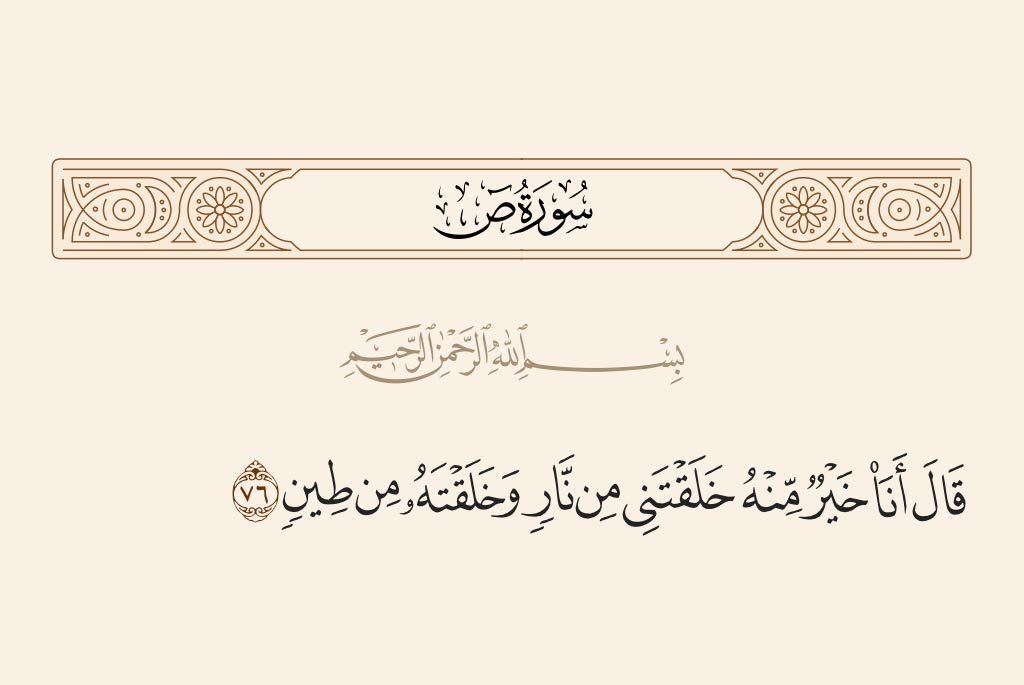 سُورَةُ صٓ
بِسْمِ ٱللَّهِ ٱلرَّحْمَٰنِ ٱلرَّحِيمِ
قَالَ أَنَا۠ خَيْرٌ مِّنْهُ خَلَقْتَنِى مِن نَّارٍ وَخَلَقْتَهُۥ مِن طِينٍ ٧٦